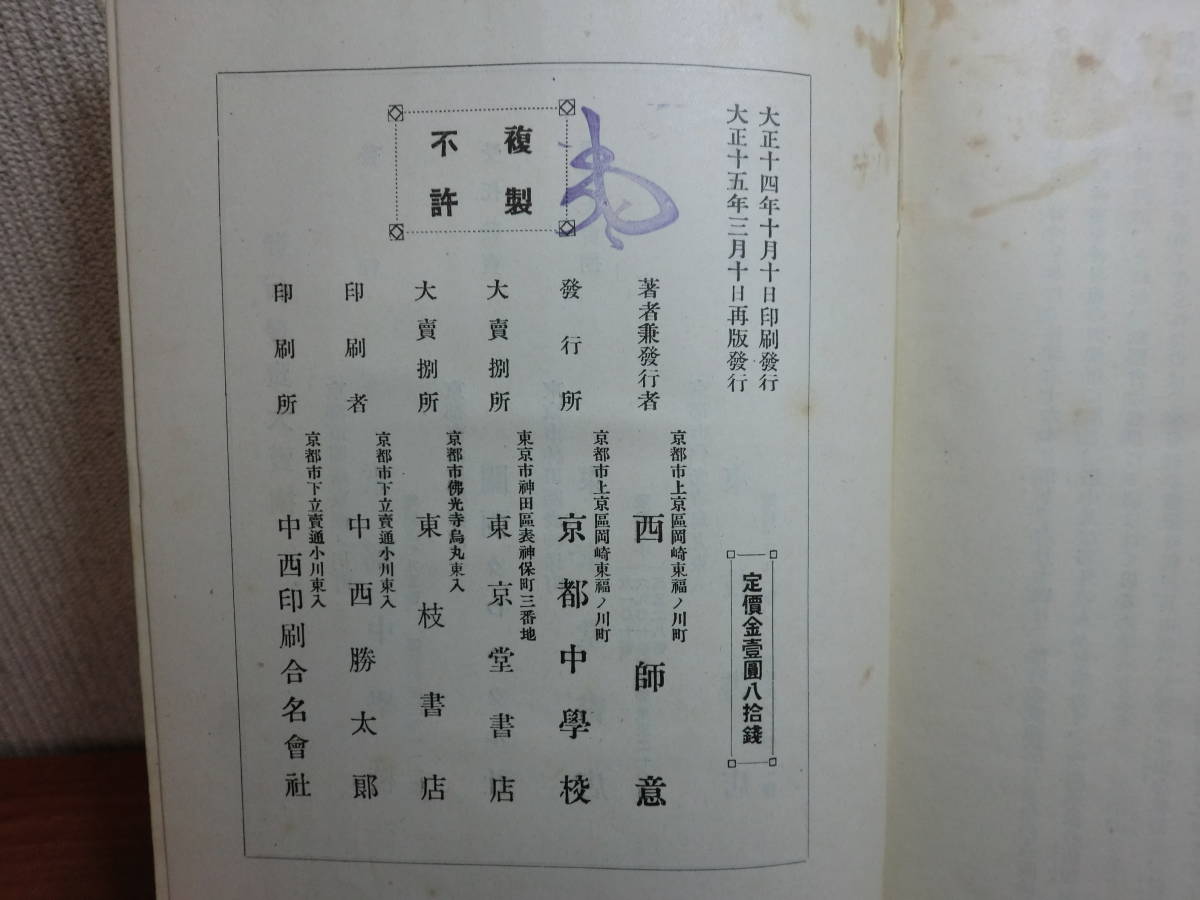 大正十四年十月十日印刷發行
大正十五年三月十日再版發行
定價金壹圓八拾錢
複製
不許
著者兼發行者
京都市上京區岡崎東福ノ川町
西師意
發行所
京都市上京區岡崎東福ノ川町
京都中學校
大賣捌所
東京市神田區表神保町三番地
東京堂書店
大賣捌所
京都市佛光寺烏丸東入
東枝書店
印刷者
京都市下立賣通小川東入
中西勝太郎
印刷所
京都市下立賣通小川東入
中西印刷合名會社